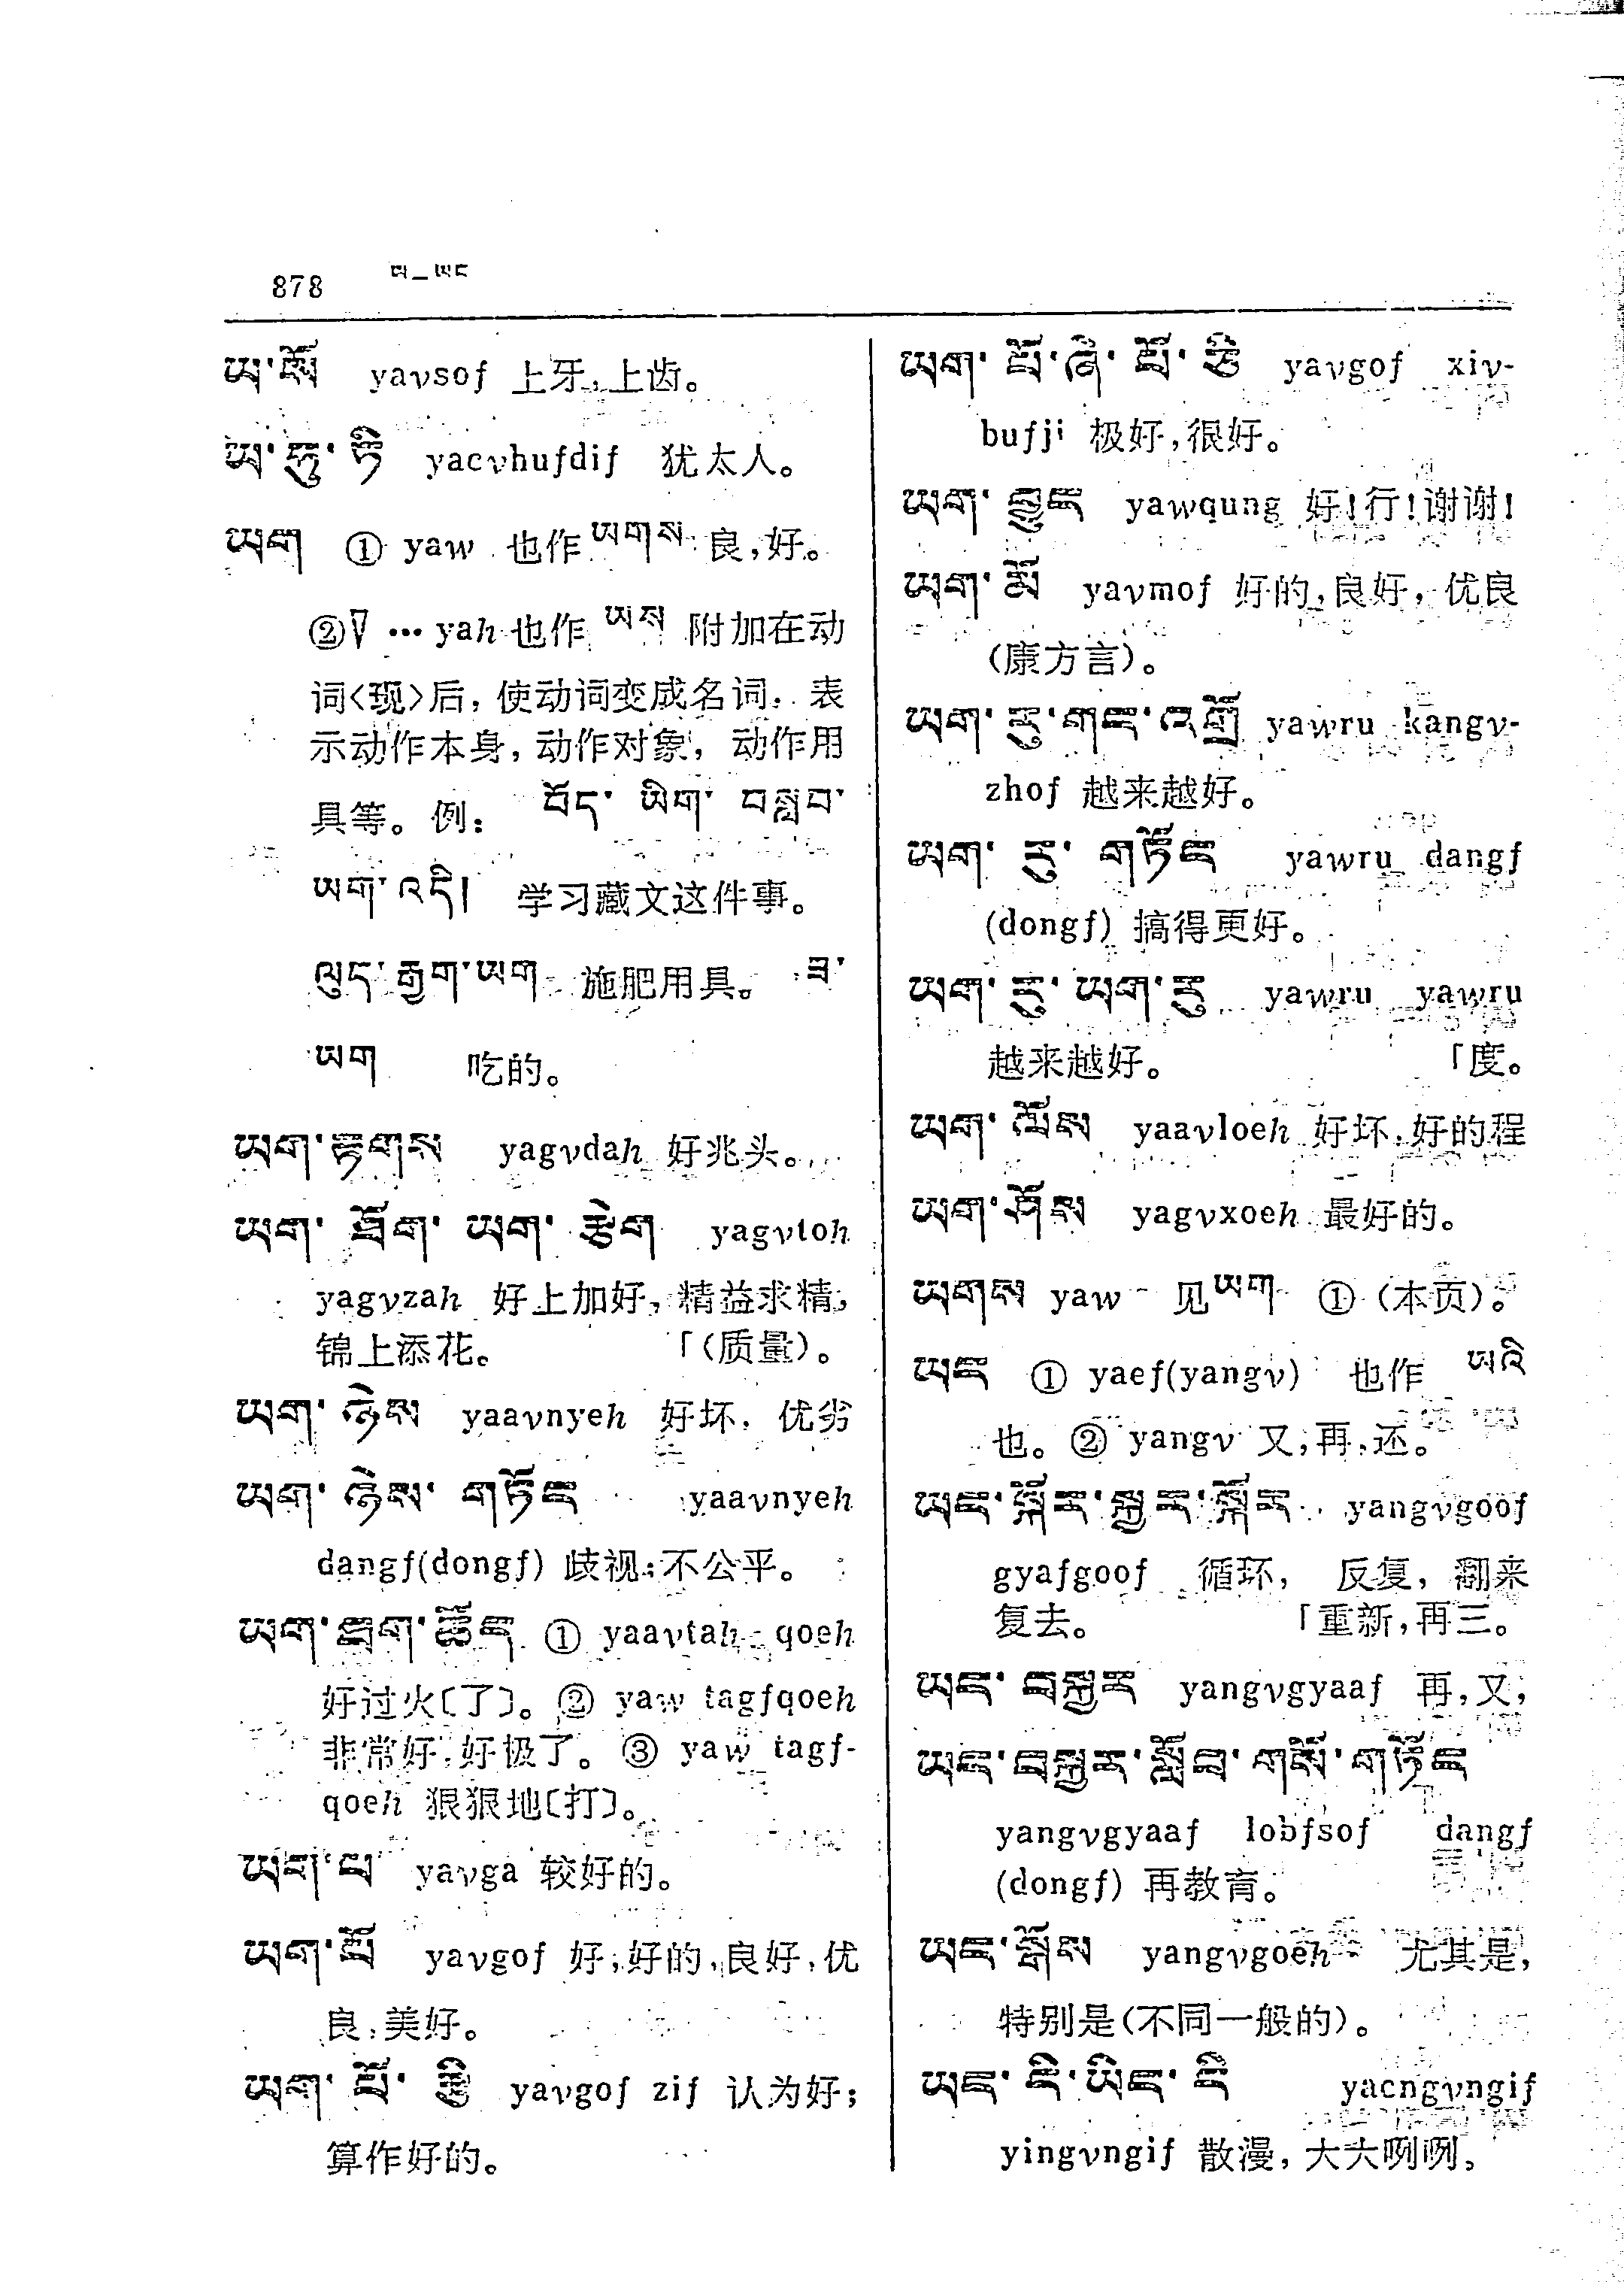 878 ཡ—ཡང
ཡ་སོ yavsof 上牙,上齿。
ཡ་ཧུ་ཏི yacvhufdif 犹太人。
ཡག ① yaw 也作 ཡགས 良,好。
② … yah 也作 ཡས 附加在动
词〈现〉后, 使动词变成名词, 表
示动作本身, 动作对象, 动作用
具等。例: བོད་ ཡིག་ བསླབ་
ཡག་འདི། 学习藏文这件事。
ལུད་རྒྱག་ཡག 施肥用具。 ཟ་
ཡག 吃的。
ཡག་རྟགས yagvdah 好兆头。
ཡག་ ཐོག་ ཡག་ རྩེག yagvtoh
yagvzah 好上加好, 精益求精,
锦上添花。 「(质量)。
ཡག་ ཉེས yaavnyeh 好坏, 优劣
ཡག་ ཉེས་ གཏོང yaavnyeh
dangf(dongf) 歧视;不公平。
ཡག་དྲག་ཆོད ① yaavtah qoeh
好过火〔了〕。② yaw tagfqoeh
非常好,好极了。③ yaw tagf-
qoeh 狠狠地〔打〕。
ཡག་པ yavga 较好的。
ཡག་པོ yavgof 好;好的,良好,优
良,美好。
ཡག་ པོ་ རྩི yavgof zif 认为好;
算作好的。
ཡག་ པོ་ཞེ་ པོ་ ཅི yavgof xiv-
bufji 极好,很好。
ཡག་ བྱུང yawqung 好!行!谢谢!
ཡག་ མོ yavmof 好的,良好, 优良
(康方言)。
ཡག་ རུ་གང་འགྲོ yawru kangv-
zhof 越来越好。
ཡག་ རུ་ གཏོང yawru dangf
(dongf) 搞得更好。
ཡག་ རུ་ ཡག་ རུ yawru yawru
越来越好。 「度。
ཡག་ ལོས yaavloeh 好坏,好的程
ཡག་ཤོས yagvxoeh 最好的。
ཡགས yaw 见 ཡག ① (本页)。
ཡང ① yaef(yangv) 也作 ཡའི
也。② yangv 又,再,还。
ཡང་སྐོར་སྐྱར་སྐོར yangvgoof
gyafgoof 循环, 反复, 翻来
复去。 「重新,再三。
ཡང་ བསྐྱར yangvgyaaf 再,又,
ཡང་བསྐྱར་སློབ་གསོ་གཏོང
yangvgyaaf lobfsof dangf
(dongf) 再教育。
ཡང་སྒོས yangvgoeh 尤其是,
特别是(不同一般的)。
ཡང་ ངེ་ཡིང་ ངེ yacngvngif
yingvngif 散漫, 大大咧咧,